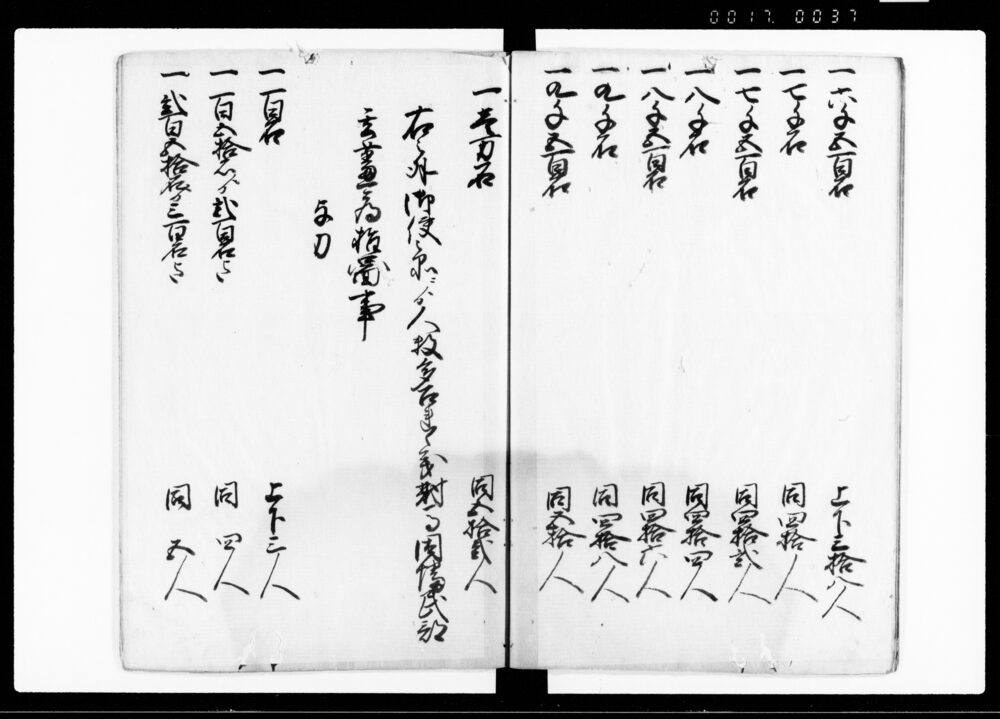 0017. 0037
一六千五百石 上下三拾八人
一七千石 同四拾人
一七千五百石 同四拾弐人
一八千石 同四拾四人
一八千五百石 同四拾六人
一九千石 同四拾八人
一九千五百石 同五拾人
一壱万石 同五拾弐人
右之外御使之衆ニより人数多召連之義対馬因幡民部
兼而為指図事
与力
一百石 上下三人
一百五拾石より弐百石迄 同四人
一弐百五拾石より三百石迄 同五人